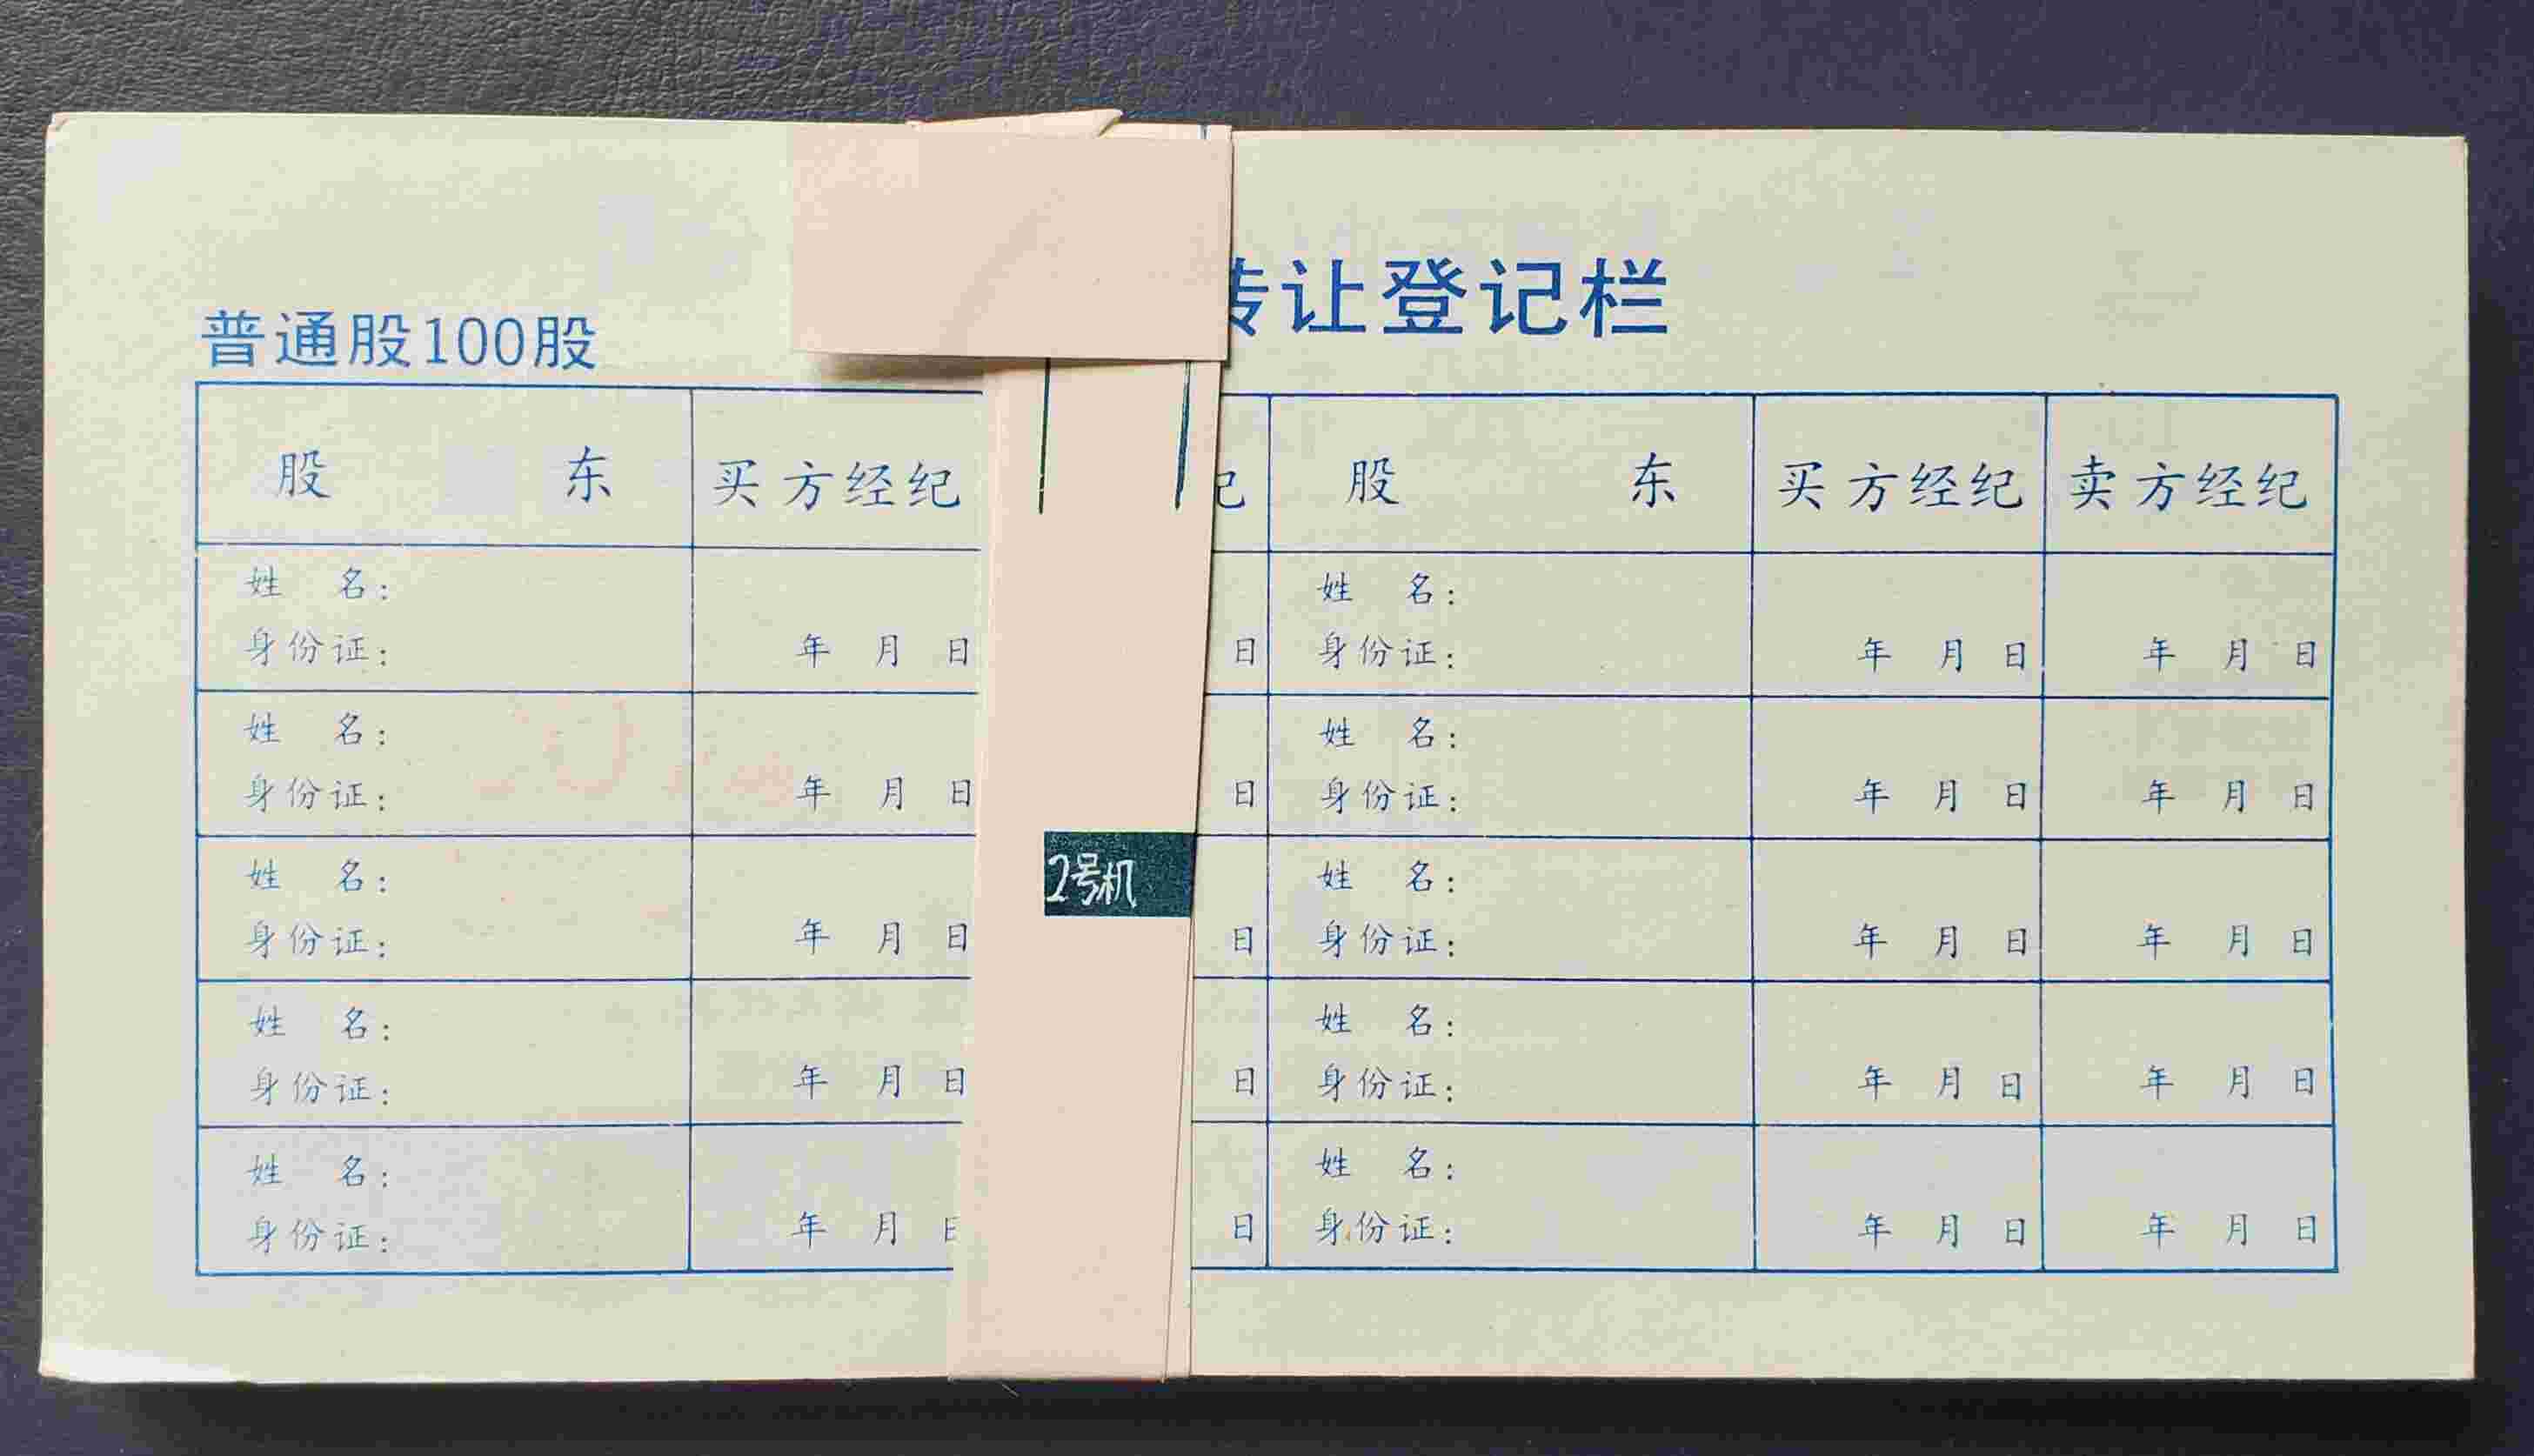 转让登记栏
普通股100股
股 东 买方经纪 纪 股 东 买方经纪 卖方经纪
姓 名: 姓 名:
身份证: 年 月 日 日 身份证: 年 月 日 年 月 日
姓 名: 姓 名:
身份证: 年 月 日 日 身份证: 年 月 日 年 月 日
2号机
姓 名: 姓 名:
身份证: 年 月 日 日 身份证: 年 月 日 年 月 日
姓 名: 姓 名:
身份证: 年 月 日 日 身份证: 年 月 日 年 月 日
姓 名: 姓 名:
身份证: 年 月 日 日 身份证: 年 月 日 年 月 日